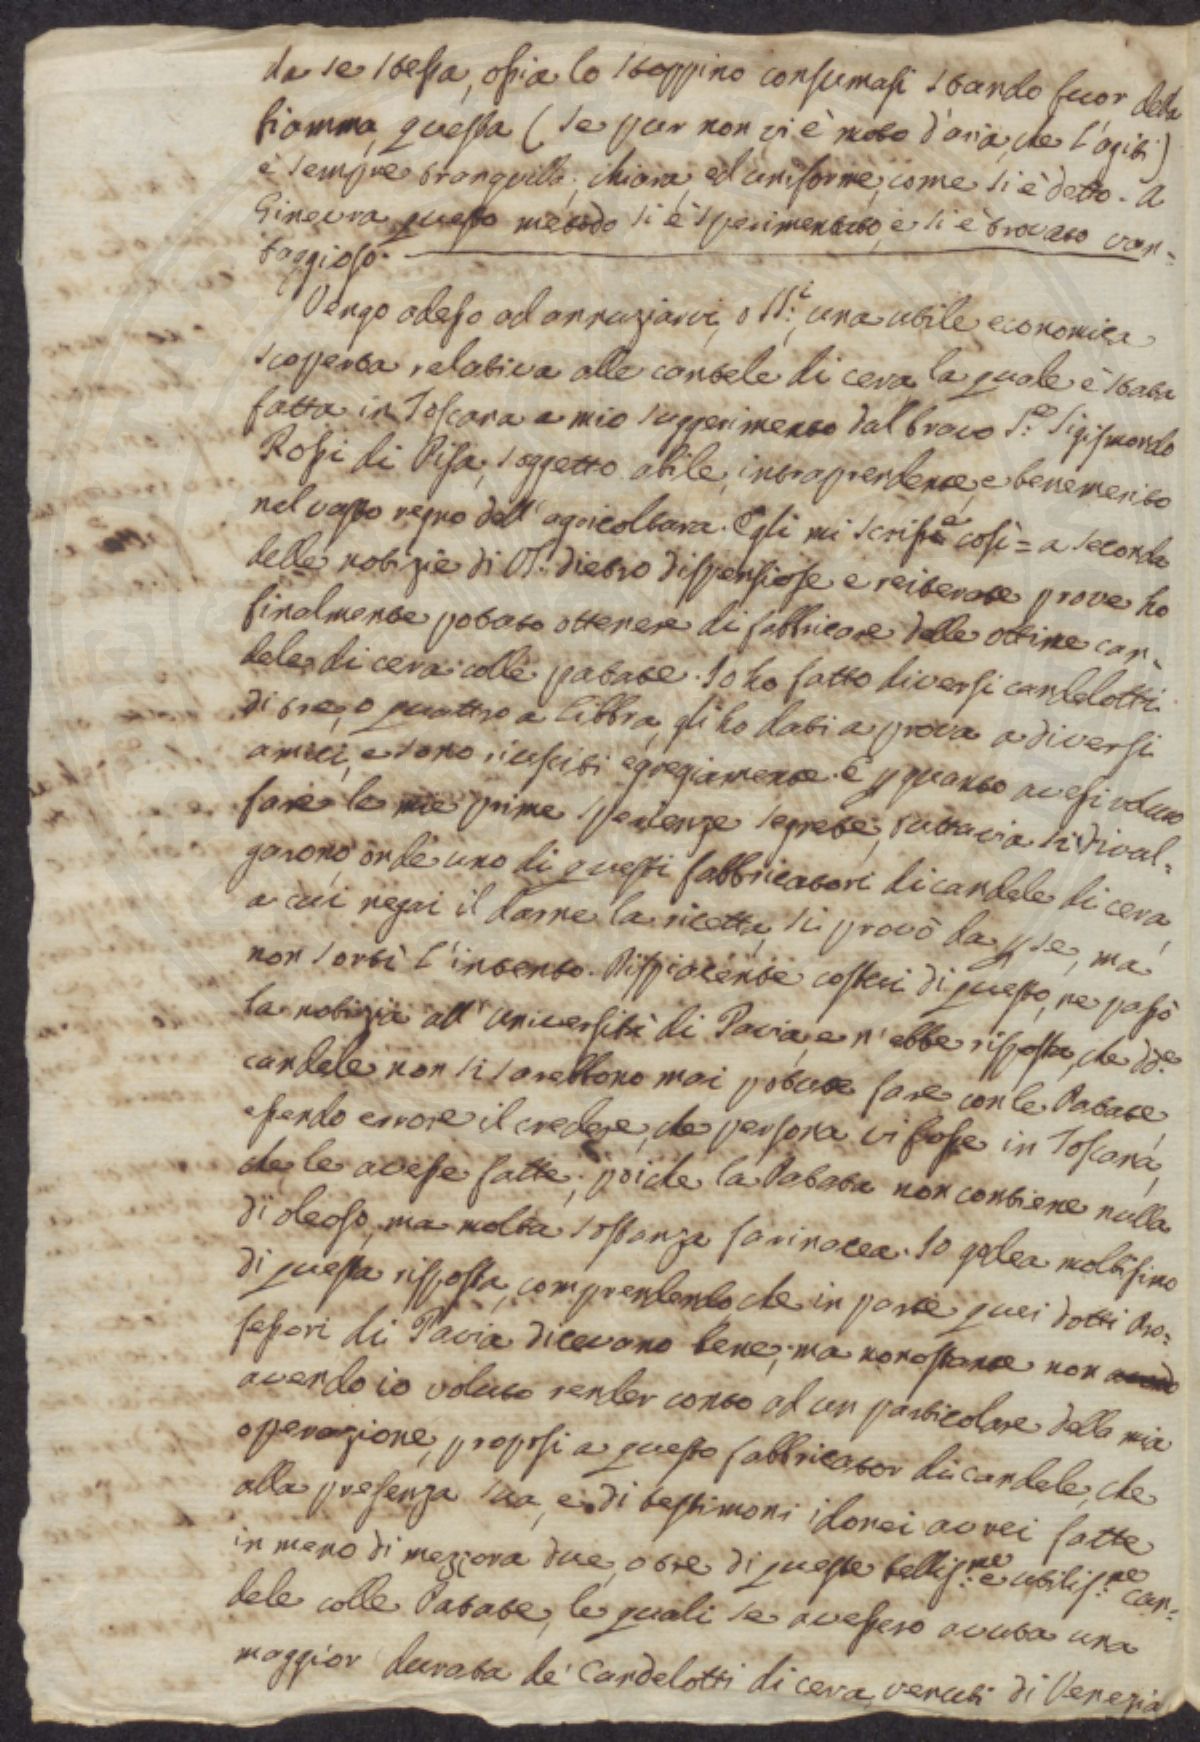 da se stessa, ossia lo stoppino consumasi stando fuor della
fiamma, questa (se pur non vi è moto d'aria, che l'agiti)
è sempre tranquilla, chiara, ed uniforme, come si è detto. A
Ginevra questo metodo si è sperimentato, e si è trovato van=
taggioso.
Vengo adesso ad annuziarvi, o SS.i, una utile economica
scoperta relativa alle cantele di cera, la quale è stata
fatta in Toscana a mio suggerimento dal bravo S.re Sigismondo
Rossi di Pisa, soggetto abile, intraprendente, e benemerito
nel vasto regno dell'agricoltura. Egli mi scrisse così = a seconda
delle notizie di VS. dietro dispensiose e reiterate prove ho
finalmente potuto ottenere di fabbricare delle ottime can=
dele di cera colle patate. Io ho fatto diversi candelotti
di tre, o quattro a libbra, gli ho dati a prova a diversi
amici, e sono riusciti egregiamente. E p quanto avessi voluto
fare le mie prime sperienze segrete, tuttavia si dival=
garono, onde uno di questi fabbricatori di candele di cera,
a cui negai il darne la ricetta, si provò da p se, ma
non sortì l'intento. Dispiacente costui di questo, ne passò
la notizia all'università di Pavia, e n'ebbe risposta, che dd.e
candele non si sarebbono mai potute fare con le Patate,
essendo errore il credere, che persona vi fosse in Toscana,
che le avesse fatte; poiche la Patata non contiene nulla
di oleoso, ma molta sostanza farinacea. Io godea moltissimo
di questa risposta, comprendendo, che in parte quei dotti Pro=
fessori di Pavia dicevano bene; ma nonostante non
avendo io voluto render conto ad un particolare della mia
operazione, proposi a questo fabbricator di candele, che
alla presenza sua, e di testimoni idonei avrei fatte
in meno di mezzora due, o tre di queste bellis.me e utilis.me can=
dele colle Patate, le quali se avessero avuta una
maggior durata de' Candelotti di cera, venuti di Venezia